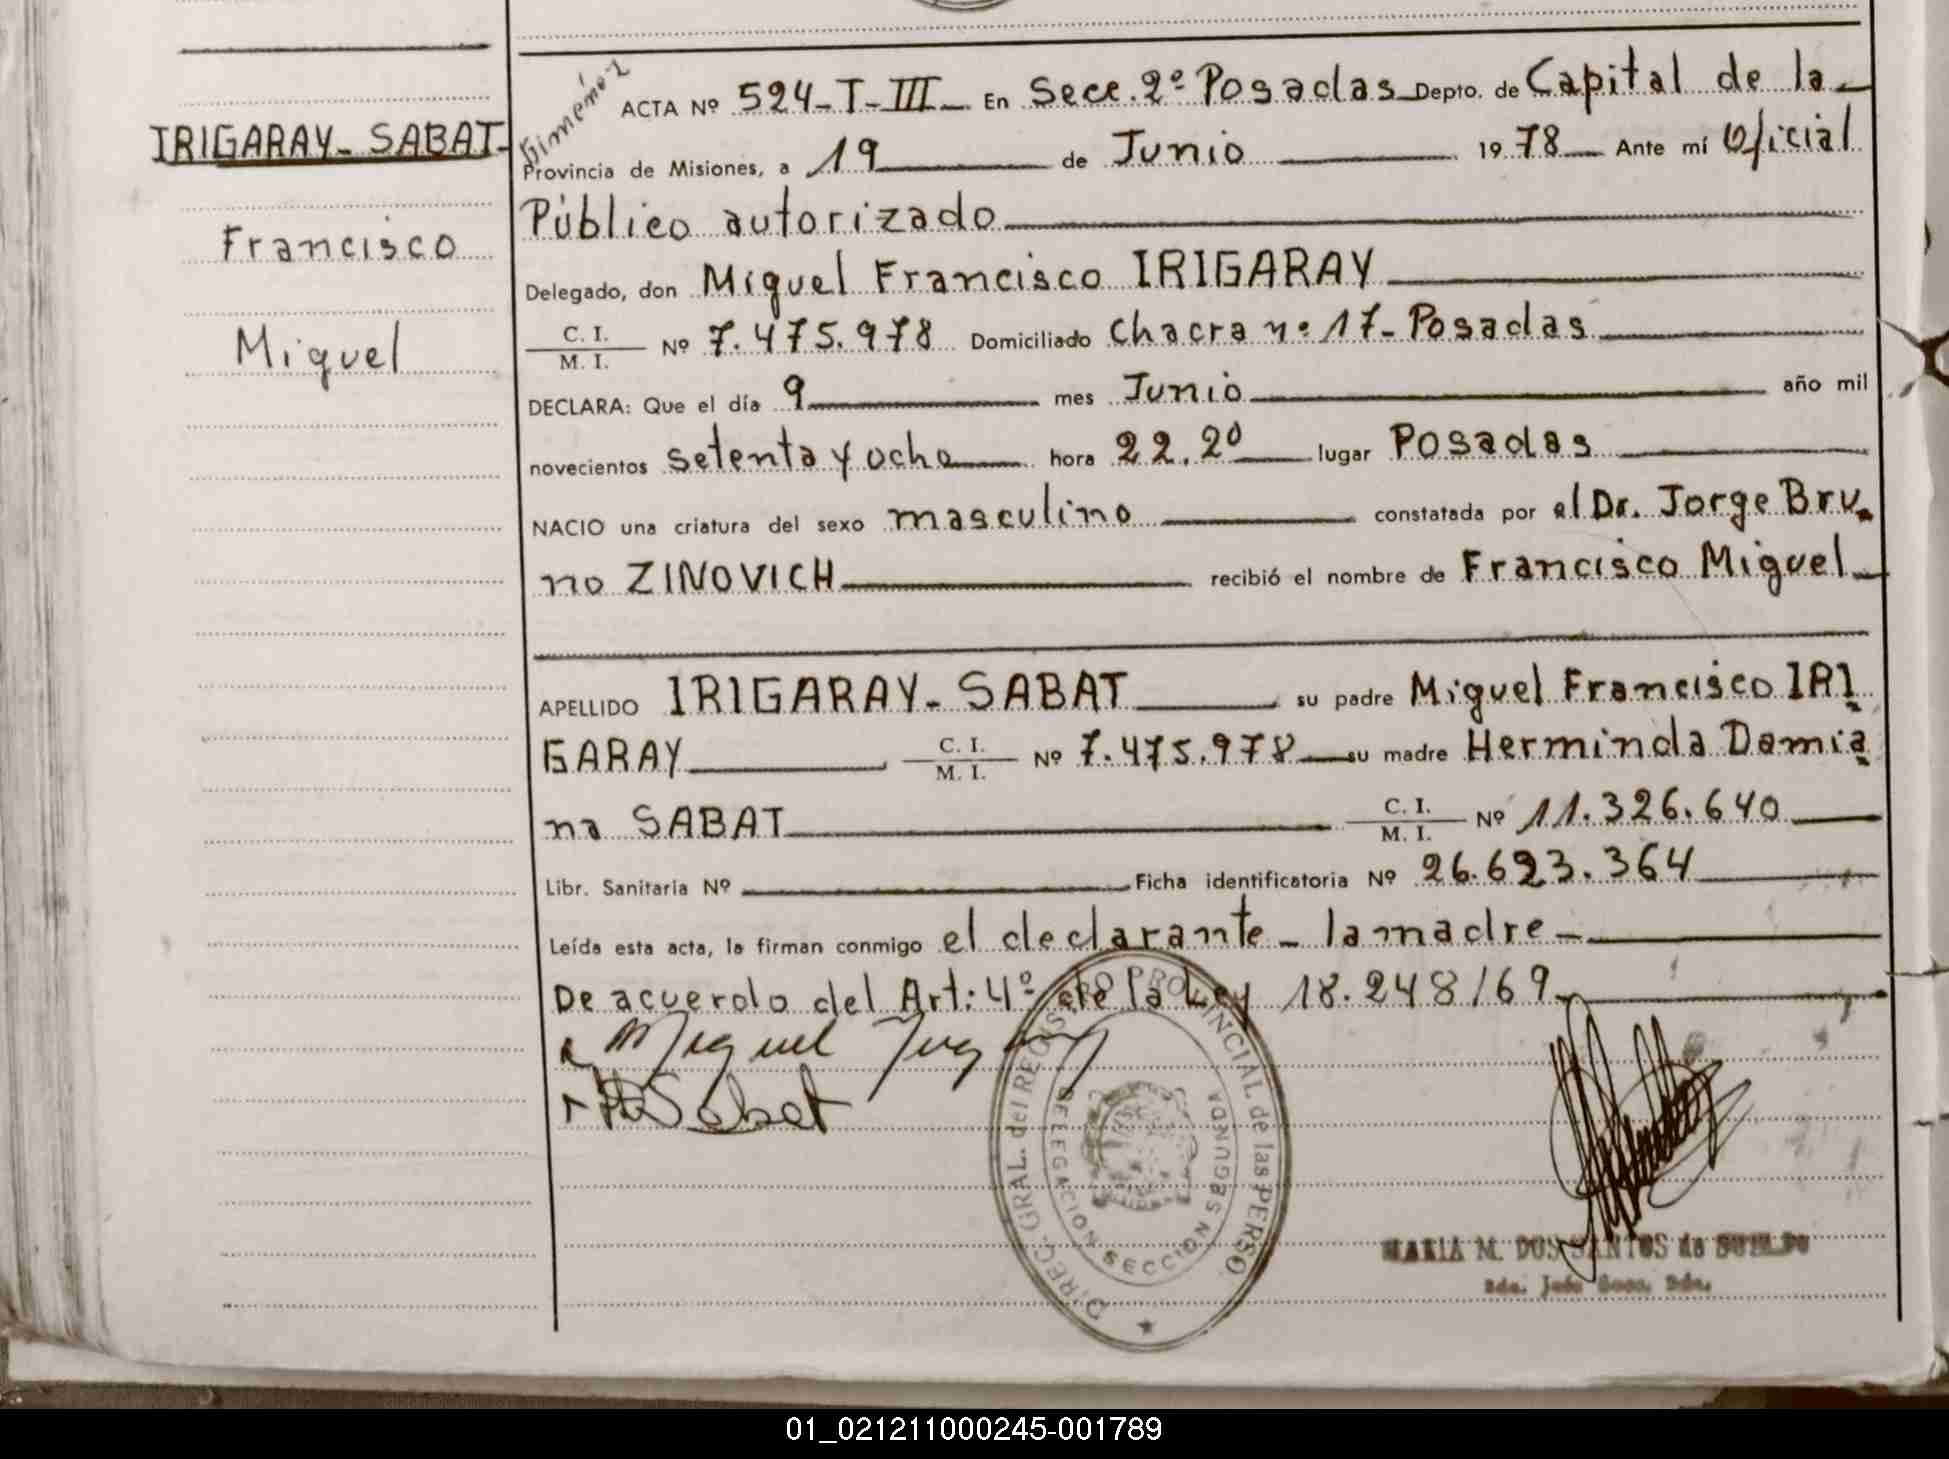 IRIGARAY-SABAT-
Francisco
Miguel
Giménez
ACTA Nº 524-T-III- En Secc. 2º Posadas Depto. de Capital de la
Provincia de Misiones, a 19 de Junio 1978 Ante mí Oficial
Público autorizado
Delegado, don Miguel Francisco IRIGARAY
C. I.
M. I. Nº 7.475.978 Domiciliado Chacra nº 17-Posadas
DECLARA: Que el día 9 mes Junio año mil
novecientos setenta y ocho hora 22.20 lugar Posadas
NACIO una criatura del sexo masculino constatada por el Dr. Jorge Bru-
no ZINOVICH recibió el nombre de Francisco Miguel
APELLIDO IRIGARAY-SABAT su padre Miguel Francisco IRI
GARAY C. I.
M. I. Nº 7.475.978 su madre Herminda Damia
na SABAT C. I.
M. I. Nº 11.326.640
Libr. Sanitaria Nº Ficha identificatoria Nº 26.623.364
Leída esta acta, la firman conmigo el declarante - la madre -
De acuerdo del Art: 4º de la Ley 18.248/69
Miguel
Sabat
DIREC. GRAL. del REGISTRO PROVINCIAL de las PERSO.
DELEGACION SECCION SEGUNDA
MARIA M. DOS SANTOS de
01_021211000245-001789